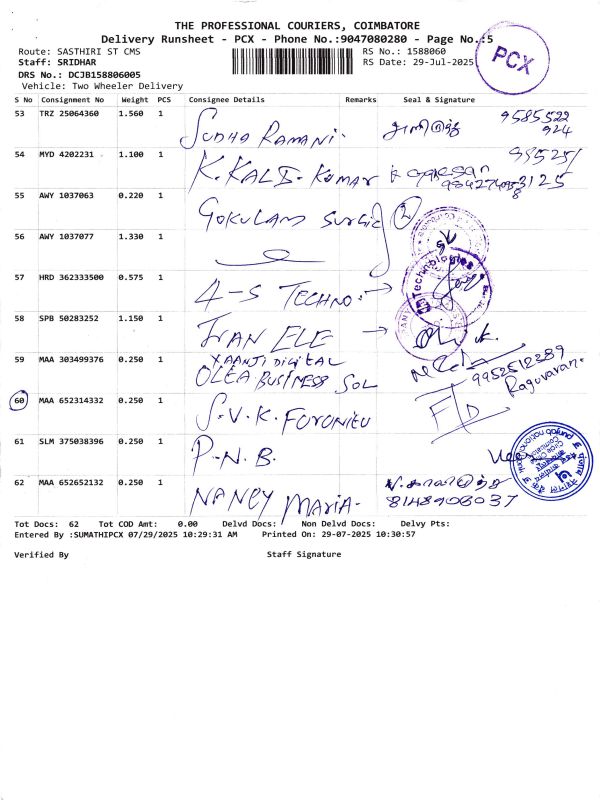 THE PROFESSIONAL COURIERS, COIMBATORE
Delivery Runsheet - PCX - Phone No.:9047080280 - Page No.:5
Route: SASTHIRI ST CMS RS No.: 1588060
Staff: SRIDHAR RS Date: 29-Jul-2025
PCX
DRS No.: DCJB158806005
Vehicle: Two Wheeler Delivery
S No Consignment No Weight PCS Consignee Details Remarks Seal & Signature
53 TRZ 25064360 1.560 1 SUDHA RAMANI. 9585522
924
54 MYD 4202231 1.100 1 K. KALI-KUMAR
55 AWY 1037063 0.220 1 GOKULAM SURGIC 2
56 AWY 1037077 1.330 1
57 HRD 362333500 0.575 1 4-S TECHNO. → Technologies
58 SPB 50283252 1.150 1 IRAN ELE →
59 MAA 303499376 0.250 1 XAANJI DIGITAL
OLEA BUSINESS SOL 9952512289
Raguvaran.
60 MAA 652314332 0.250 1 S.V.K. F/D
61 SLM 375038396 0.250 1 P.N.B.
62 MAA 652652132 0.250 1 NANCY MARIA. 8148908037
Tot Docs: 62 Tot COD Amt: 0.00 Delvd Docs: Non Delvd Docs: Delvy Pts:
Entered By :SUMATHIPCX 07/29/2025 10:29:31 AM Printed On: 29-07-2025 10:30:57
Verified By Staff Signature